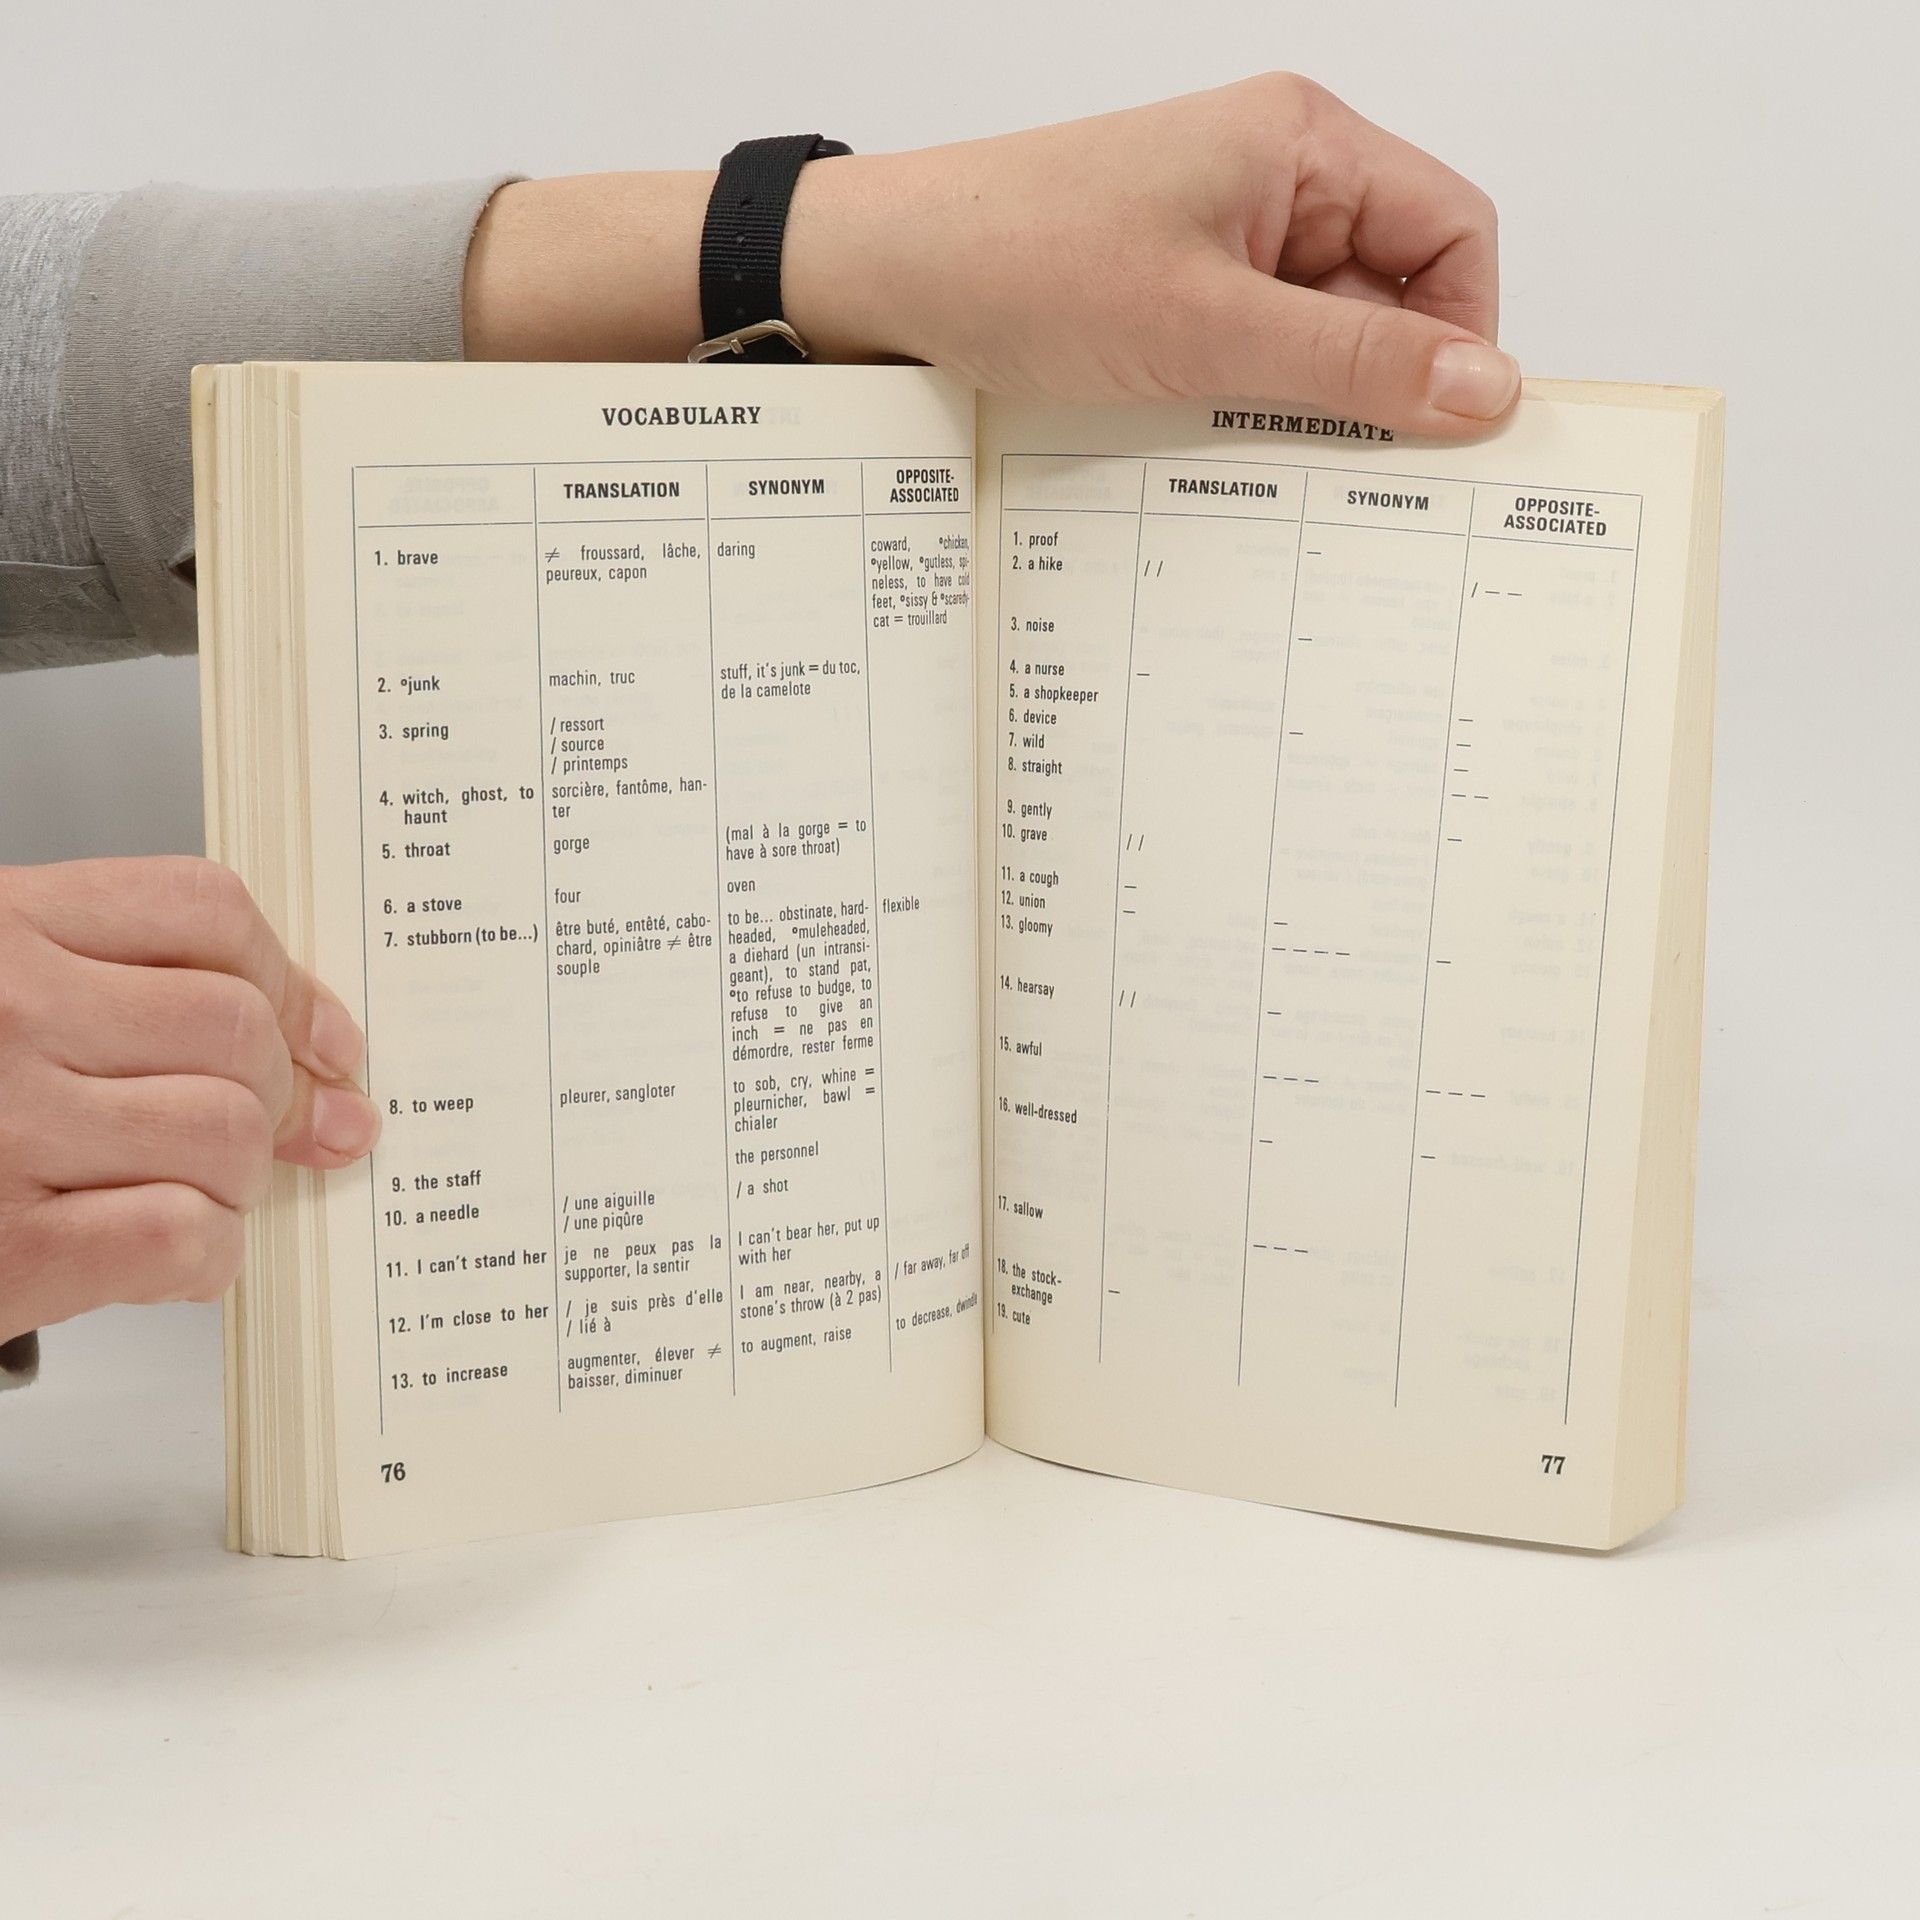 VOCABULARY
TRANSLATION SYNONYM OPPOSITE-
ASSOCIATED
1. brave ≠ froussard, lâche, daring coward, °chicken,
peureux, capon °yellow, °gutless, spi-
neless, to have cold
feet, °sissy & °scaredy-
cat = trouillard
2. °junk machin, truc stuff, it's junk = du toc,
de la camelote
3. spring / ressort
/ source
/ printemps
4. witch, ghost, to sorcière, fantôme, han-
haunt ter
5. throat gorge (mal à la gorge = to
have à sore throat)
6. a stove four oven
7. stubborn (to be...) être buté, entêté, cabo- to be... obstinate, hard- flexible
chard, opiniâtre ≠ être headed, °muleheaded,
souple a diehard (un intransi-
geant), to stand pat,
°to refuse to budge, to
refuse to give an
inch = ne pas en
démordre, rester ferme
8. to weep pleurer, sangloter to sob, cry, whine =
pleurnicher, bawl =
chialer
9. the staff the personnel
10. a needle / une aiguille / a shot
/ une piqûre
11. I can't stand her je ne peux pas la I can't bear her, put up
supporter, la sentir with her
12. I'm close to her / je suis près d'elle I am near, nearby, a / far away, far off
/ lié à stone's throw (à 2 pas)
13. to increase augmenter, élever ≠ to augment, raise to decrease, dwindle
baisser, diminuer
76
INTERMEDIATE
TRANSLATION SYNONYM OPPOSITE-
ASSOCIATED
1. proof —
2. a hike / / / — —
3. noise —
4. a nurse —
5. a shopkeeper
6. device —
7. wild — —
8. straight —
— —
9. gently
10. grave / / —
11. a cough —
12. union —
13. gloomy —
— — — — —
14. hearsay / / —
15. awful
— — — — — —
16. well-dressed
— —
17. sallow
— — —
18. the stock-
exchange —
19. cute
77